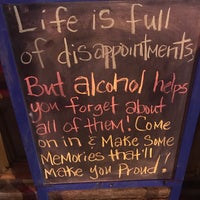 Life is full
of disappointments,
But alcohol helps
you forget about
all of them! Come
on in & Make Some
Memories that'll
make you Proud!